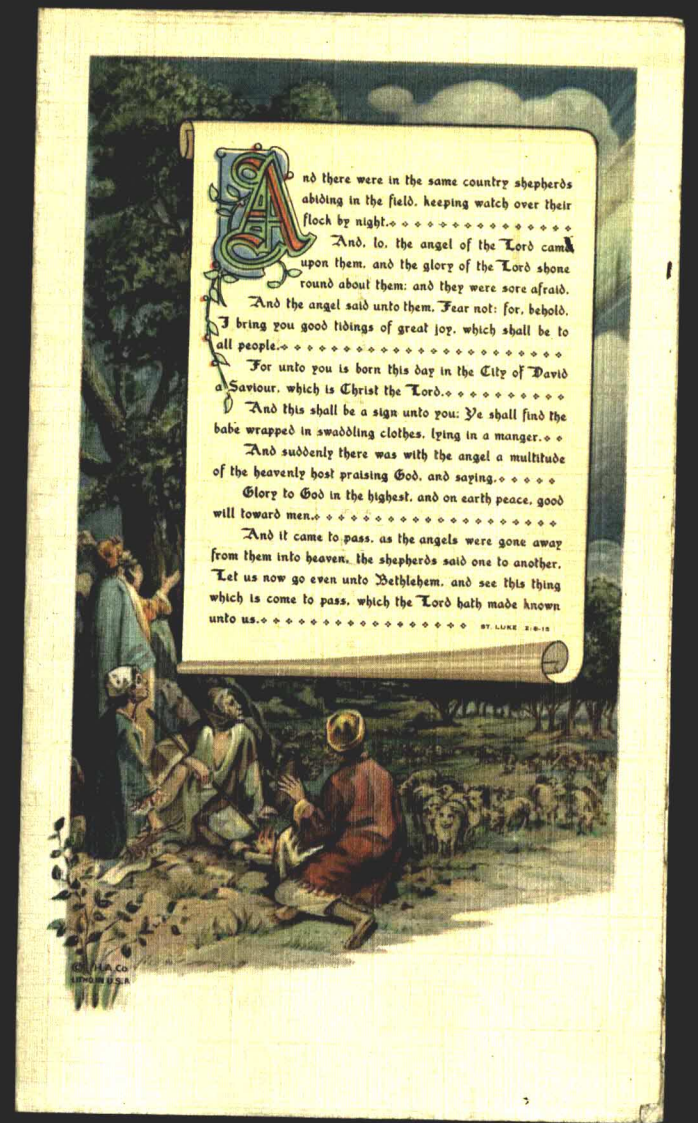 And there were in the same country shepherds
abiding in the field, keeping watch over their
flock by night.
And, lo, the angel of the Lord came
upon them, and the glory of the Lord shone
round about them: and they were sore afraid.
And the angel said unto them, Fear not: for, behold,
I bring you good tidings of great joy, which shall be to
all people.
For unto you is born this day in the City of David
a Saviour, which is Christ the Lord.
And this shall be a sign unto you; Ye shall find the
babe wrapped in swaddling clothes, lying in a manger.
And suddenly there was with the angel a multitude
of the heavenly host praising God, and saying,
Glory to God in the highest, and on earth peace, good
will toward men.
And it came to pass, as the angels were gone away
from them into heaven, the shepherds said one to another,
Let us now go even unto Bethlehem, and see this thing
which is come to pass, which the Lord hath made known
unto us. ST. LUKE 2:8-15
LITHO IN U.S.A